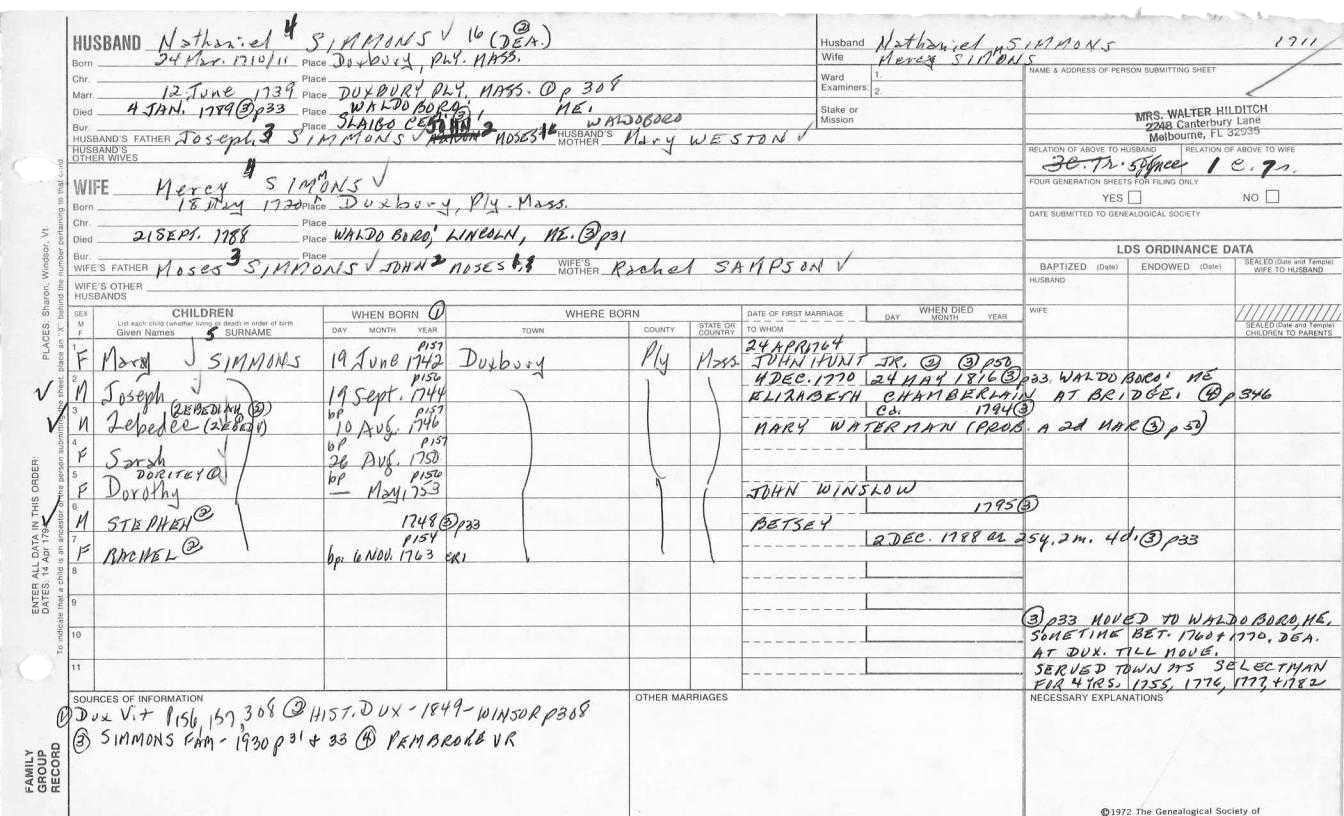 HUSBAND Nathaniel 4 SIMMONS √ 16 (DEA.) ②
Born 24 Mar. 1710/11 Place Duxbury, PLY. MASS.
Chr. Place
Marr. 12 June 1739 Place DUXBURY PLY, MASS. ① p 308
Died 4 JAN. 1789 ③ p33 Place WALDOBORO, ME.
Bur. Place SLAIGO CEM. ③, WALDOBORO
HUSBAND'S FATHER Joseph 3 SIMMONS √ JOHN 2 MOSES 1 HUSBAND'S MOTHER Mary WESTON √
HUSBAND'S OTHER WIVES
WIFE Mercy 4 SIMMONS √
Born 18 May 1720 Place Duxbury, Ply. Mass.
Chr. Place
Died 21 SEPT. 1788 Place WALDOBORO, LINCOLN, ME. ③ p31
Bur. Place
WIFE'S FATHER Moses 3 SIMMONS √ JOHN 2 MOSES 1 WIFE'S MOTHER Rachel SAMPSON √
WIFE'S OTHER HUSBANDS
Husband Nathaniel SIMMONS 1711
Wife Mercy SIMMONS
Ward Examiners: 1.
2.
Stake or Mission
NAME & ADDRESS OF PERSON SUBMITTING SHEET
MRS. WALTER HILDITCH
2248 Canterbury Lane
Melbourne, FL 32935
RELATION OF ABOVE TO HUSBAND RELATION OF ABOVE TO WIFE
1 C. 7r.
FOUR GENERATION SHEETS FOR FILING ONLY
YES NO
DATE SUBMITTED TO GENEALOGICAL SOCIETY
LDS ORDINANCE DATA
BAPTIZED (Date) ENDOWED (Date) SEALED (Date and Temple) WIFE TO HUSBAND
HUSBAND
WIFE
SEALED (Date and Temple) CHILDREN TO PARENTS
SEX M F CHILDREN WHEN BORN ① WHERE BORN DATE OF FIRST MARRIAGE WHEN DIED
List each child (whether living or dead) in order of birth
Given Names 5 SURNAME DAY MONTH YEAR TOWN COUNTY STATE OR COUNTRY TO WHOM DAY MONTH YEAR
1 p157 24 APR 1764
F Mary √ SIMMONS 19 June 1742 Duxbury Ply Mass. JOHN HUNT JR. ② ③ p50
2 p156 4 DEC. 1770 24 MAY 1816 ③ p33. WALDOBORO, ME
√ M Joseph 19 Sept. 1744 ELIZABETH CHAMBERLAIN AT BRIDGE. ④ p346
3 (ZEBEDIAH ②) bp p157 Ca. 1794 ③
√ M Zebedee 10 Aug. 1746 MARY WATERMAN (PROB. A 2d MAR ③ p50)
4 bp p157
F Sarah 26 Aug. 1750
5 DORITEY ② bp p156
F Dorothy — May, 1753 JOHN WINSLOW
6 1795 ③
√ M STEPHEN ② 1748 ③ p33 BETSEY
7 p154 2 DEC. 1788 ae 25y. 2m. 4d. ③ p33
F RACHEL ② bp. 6 NOV. 1763 CR1
8
9
10
11
③ p33 MOVED TO WALDOBORO, ME.
SOMETIME BET. 1760 & 1770. DEA.
AT DUX. TILL MOVE.
SERVED TOWN AS SELECTMAN
FOR 4 YRS. 1755, 1776, 1777, & 1782
SOURCES OF INFORMATION OTHER MARRIAGES NECESSARY EXPLANATIONS
① Dux Vit p156, 157, 308 ② HIST. DUX - 1849 - WINSOR p308
③ SIMMONS FAM - 1930 p31 & 33 ④ PEMBROKE VR
©1972 The Genealogical Society of
FAMILY GROUP RECORD
ENTER ALL DATA IN THIS ORDER:
PLACES: Sharon, Windsor, Vt